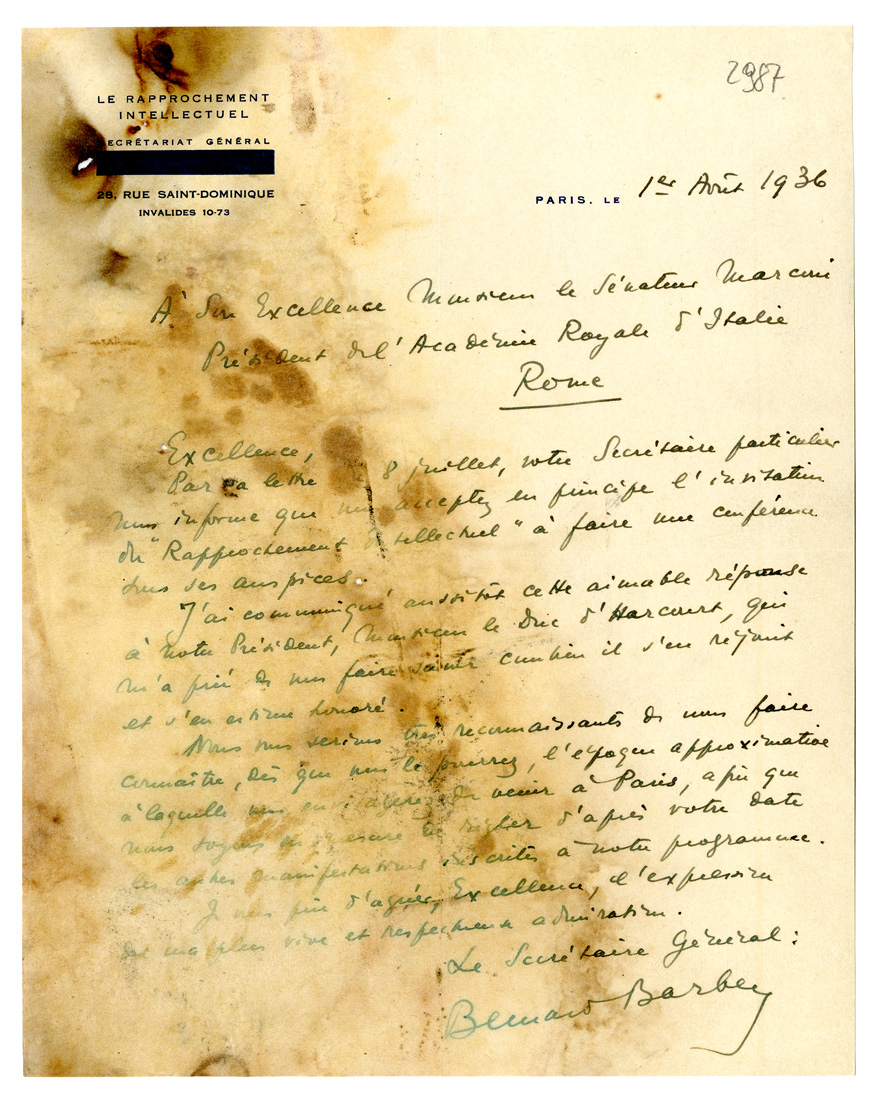 2987
LE RAPPROCHEMENT
INTELLECTUEL
SECRÉTARIAT GÉNÉRAL
28, RUE SAINT-DOMINIQUE
INVALIDES 10-73
PARIS, LE 1er Août 1936
À Son Excellence Monsieur le Sénateur Marconi
Président de l'Académie Royale d'Italie
Rome
Excellence,
Par sa lettre 8 juillet, votre Secrétaire particulier
nous informe que vous acceptez en principe l'invitation
du "Rapprochement Intellectuel" à faire une conférence
sous ses auspices.
J'ai communiqué aussitôt cette aimable réponse
à notre Président, Monsieur le Duc d'Harcourt, qui
m'a prié de vous faire savoir combien il s'en réjouit
et s'en estime honoré.
Nous vous serions très reconnaissants de nous faire
connaître, dès que vous le pourrez, l'époque approximative
à laquelle vous envisagerez de venir à Paris, afin que
nous soyons en mesure de régler d'après votre date
les autres manifestations inscrites à notre programme.
Je vous prie d'agréer, Excellence, l'expression
de ma plus vive et respectueuse admiration.
Le Secrétaire Général:
Bernard Barbey